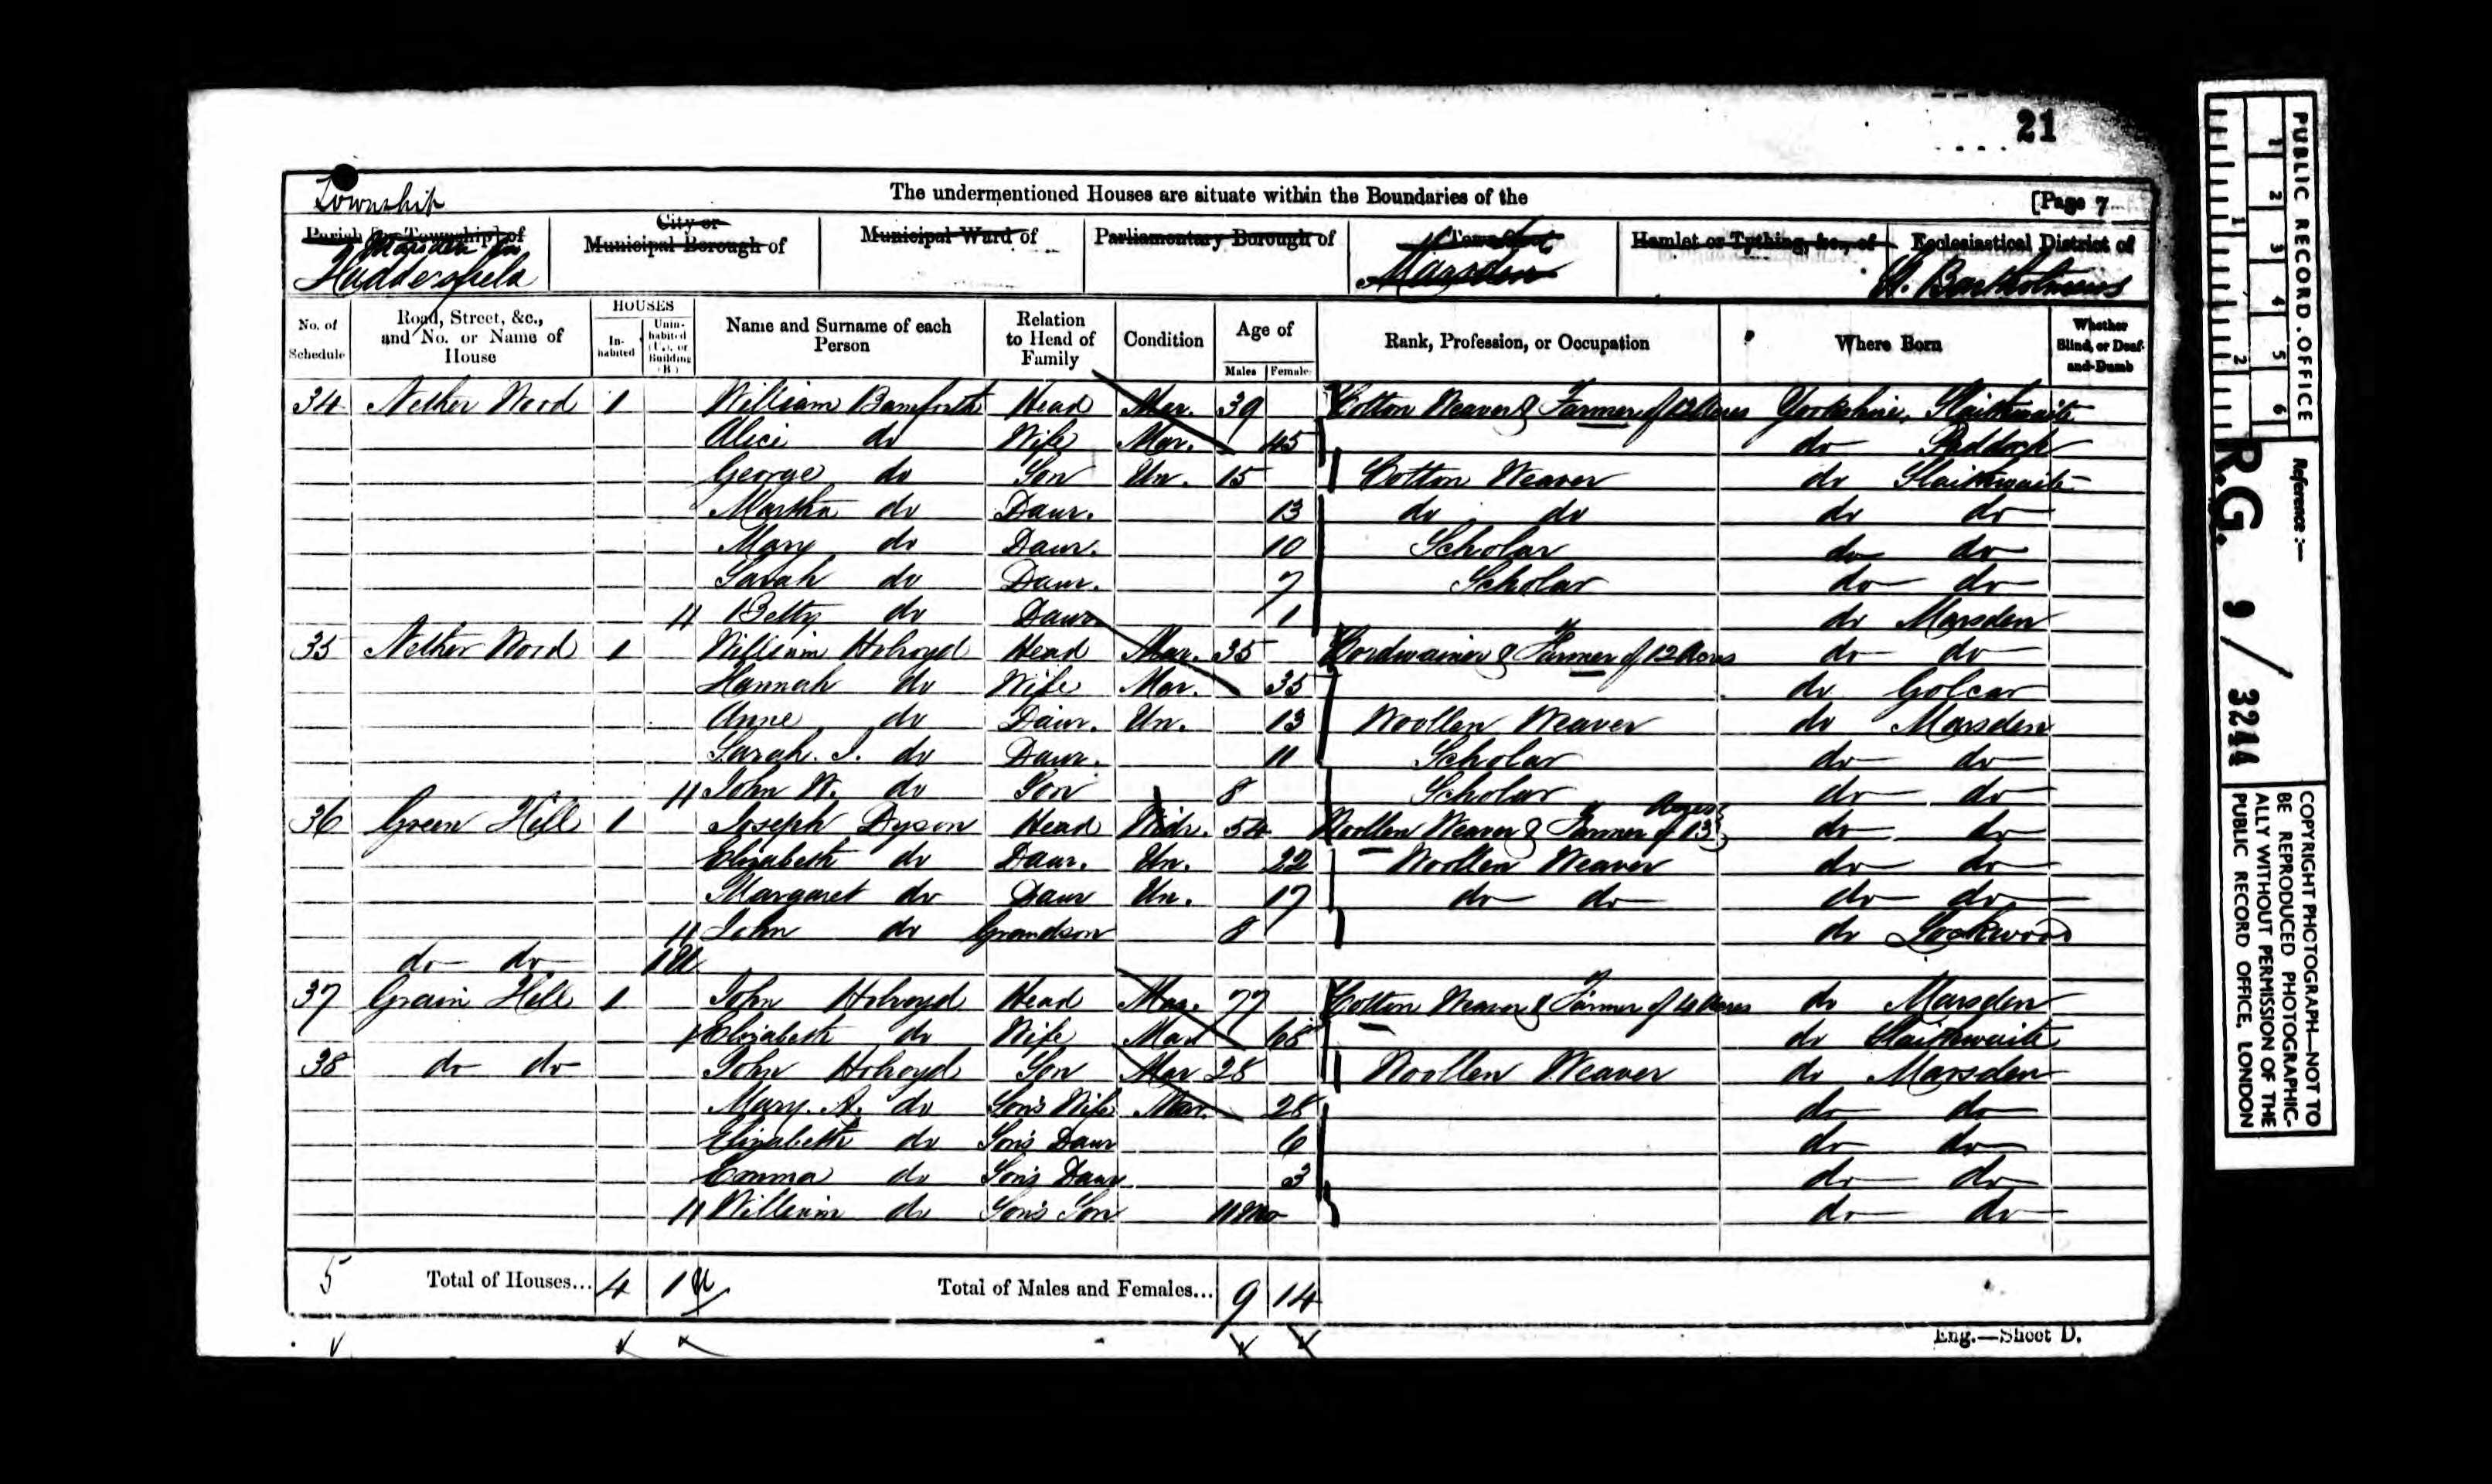 21
Township
The undermentioned Houses are situate within the Boundaries of the [Page 7
Parish [or Township] of City or Municipal Borough of Municipal Ward of Parliamentary Borough of Town of Hamlet or Tything, &c., of Ecclesiastical District of
Marsden in
Huddersfield Marsden St. Bartholmews
No. of Schedule Road, Street, &c., and No. or Name of House HOUSES Inhabited Uninhabited (U.), or Building (B.) Name and Surname of each Person Relation to Head of Family Condition Age of Males Females Rank, Profession, or Occupation Where Born Whether Blind, or Deaf-and-Dumb
34 Nether Wood 1 William Bamforth Head Mar. 39 Cotton Weaver & Farmer of 12 Acres Yorkshire, Slaithwaite
Alice do Wife Mar. 45 do Paddock
George do Son Un. 15 Cotton Weaver do Slaithwaite
Martha do Daur. 13 do do do do
Mary do Daur. 10 Scholar do do
Sarah do Daur. 7 Scholar do do
// Betty do Daur 1 do Marsden
35 Nether Wood 1 William Holroyd Head Mar. 35 Cordwainer & Farmer of 12 Acres do do
Hannah do Wife Mar. 35 do Golcar
Anne do Daur. Un. 13 Woollen Weaver do Marsden
Sarah. I. do Daur. 11 Scholar do do
// John W. do Son 8 Scholar do do
36 Green Hill 1 Joseph Dyson Head Widr. 54 Woollen Weaver & Farmer of 13 Acres do do
Elizabeth do Daur. Un. 22 Woollen Weaver do do
Margaret do Daur Un. 17 do do do do
// John do Grandson 8 do Lockwood
do do 1 U
37 Grain Hill 1 John Holroyd Head Mar. 77 Cotton Weaver & Farmer of 4 Acres do Marsden
/ Elizabeth do Wife Mar 68 do Slaithwaite
38 do do John Holroyd Son Mar 28 Woollen Weaver do Marsden
Mary. A. do Son's Wife Mar. 28 do do
Elizabeth do Son's Daur 6 do do
Emma do Son's Daur 3 do do
// William do Son's Son 11 Mo do do
5 Total of Houses... 4 1 U Total of Males and Females... 9 14
Eng.—Sheet D.
PUBLIC RECORD OFFICE
1 2 3 4 5 6
1 2
Reference :—
R.G. 9 / 3244
COPYRIGHT PHOTOGRAPH—NOT TO
BE REPRODUCED PHOTOGRAPHIC-
ALLY WITHOUT PERMISSION OF THE
PUBLIC RECORD OFFICE, LONDON